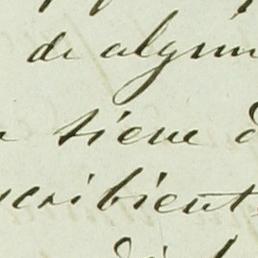 de algun
tiene d
scribient